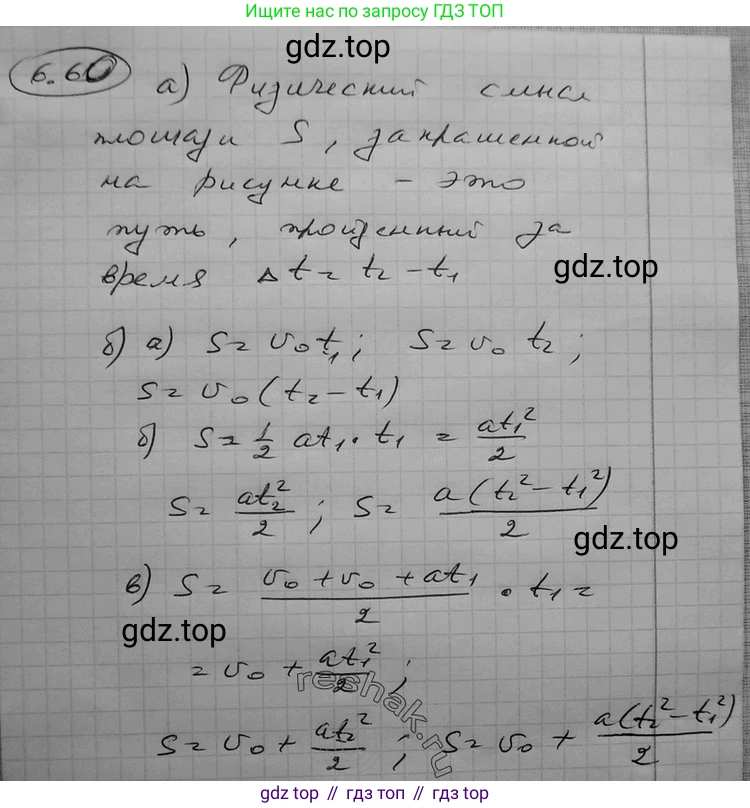 Ищите нас по запросу ГДЗ ТОП
gdz.top
6.60 а) Физический смысл
площади S, закрашенной
на рисунке – это
путь, пройденный за
время Δt = t₂ – t₁
gdz.top
б) а) S = υ₀t₁; S = υ₀ t₂;
S = υ₀(t₂ – t₁)
б) S = 1/2 at₁ · t₁ = at₁²/2
S = at₂²/2; S = a(t₂² – t₁²)/2
gdz.top
в) S = (υ₀ + υ₀ + at₁)/2 · t₁ =
gdz.top
= υ₀ + at₁²/2;
reshak.ru
S = υ₀ + at₂²/2; S = υ₀ + a(t₂² – t₁²)/2
gdz.top // гдз.топ // gdz.top